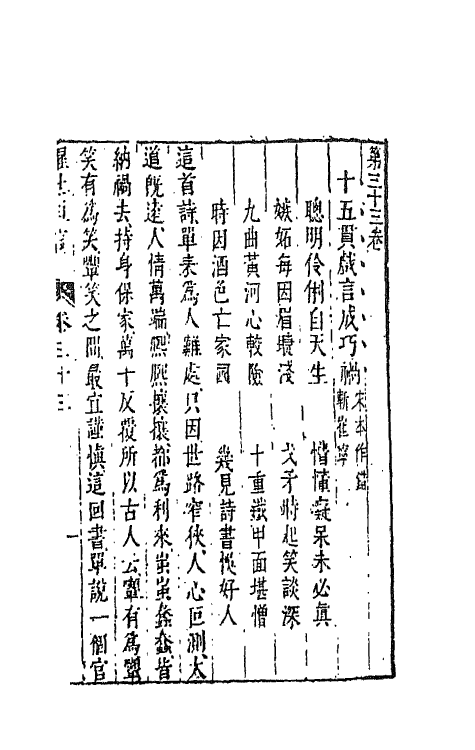 第三十三卷
十五貫戲言成巧禍 宋本作錯斬崔寧
聰明伶俐自天生 懵懂癡呆未必真
嫉妬每因眉睫淺 戈矛時起笑談深
九曲黃河心較險 十重鐵甲面堪憎
時因酒色亡家國 幾見詩書悞好人
這首詩單表為人難處只因世路窄狹人心叵測大
道既遠人情萬端熙熙攘攘都為利來蚩蚩蠢蠢皆
納禍去持身保家萬千反覆所以古人云顰有為顰
笑有為笑顰笑之間最宜謹慎這回書單說一個官
醒世恆言 卷三十三 一